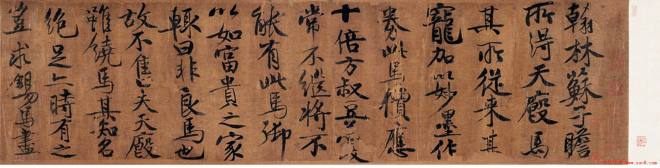 翰林蘇子瞻
所得天廄馬
其所從來甚
寵加以妙墨作
券此馬價應
十倍方叔豆羹
常不繼將不
能有此馬御
以如富貴之家
輒曰非良馬也
故不售夫天廄
雖饒馬其知名
絕足亦時有之
豈求錫馬盡